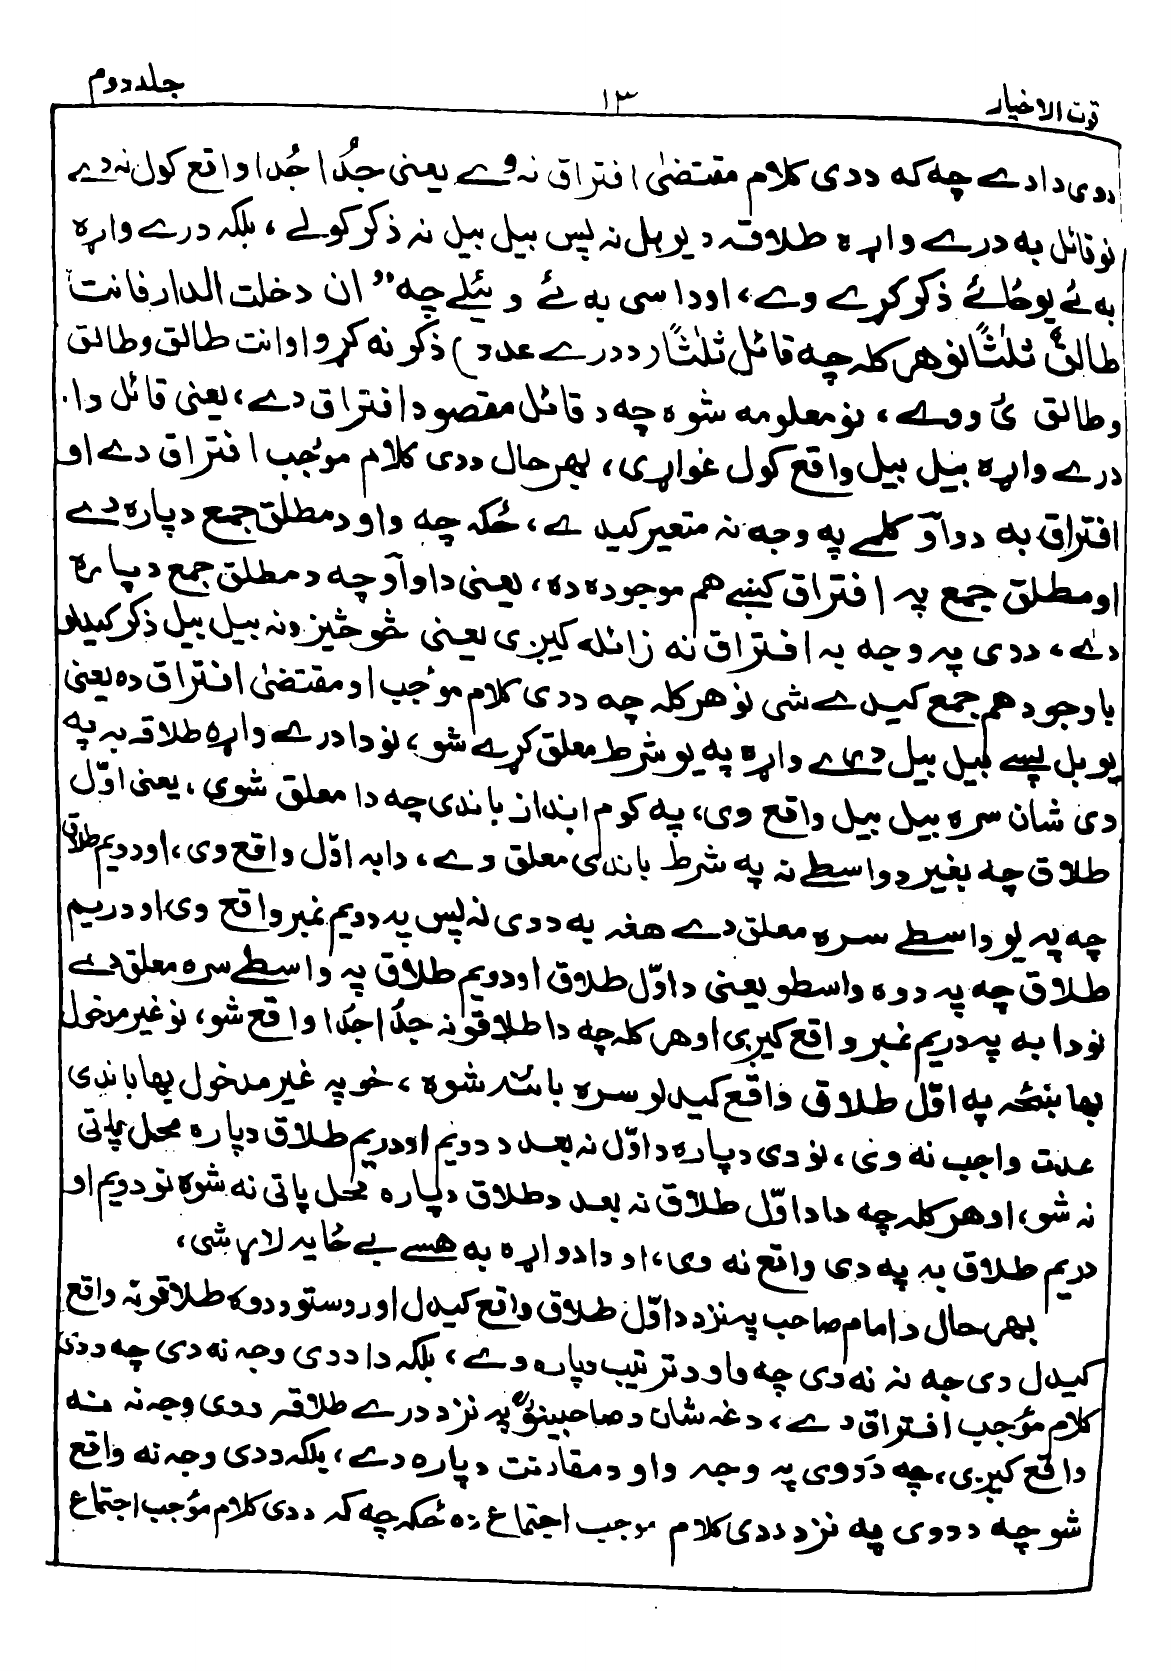 قوت الاخیار ١٣ جلد دوم
دوی دا دے چه که ددی کلام مقتضیٰ افتراق نه وے یعنی جُدا جُدا واقع کول نه دے
نو قائل به درے واړه طلاقه دیو بل نه پس بیل بیل نه ذکر کولے ، بلکه درے واړه
به ئے یو ځائے ذکر کړے وے، او داسی به ئے وئیلے چه "ان دخلت الدار فانت
طالقٌ ثلٰثاً نو هر کله چه قائل ثلٰثاً (ددرے عدد) ذکر نه کړو او انت طالق وطالق
وطالق ئ ووے ، نو معلومه شوه چه د قائل مقصود افتراق دے، یعنی قائل دا
درے واړه بیل بیل واقع کول غواړی، بهر حال ددی کلام موجب افتراق دے او
افتراق به دواؤ کلمے په وجه نه متغیر کیدے ، ځکه چه واو د مطلق جمع دپاره دے
او مطلق جمع په افتراق کښے هم موجوده ده، یعنی دا واؤ چه د مطلق جمع دپاره
دے، ددی په وجه به افتراق نه زائله کیږی یعنی څو څیزونه بیل بیل ذکر کیدو
باوجود هم جمع کیدے شی نو هر کله چه ددی کلام مؤجب او مقتضیٰ افتراق ده یعنی
یو بل پسے بیل بیل درے واړه په یو شرط معلق کړے شو، نو دا درے واړه طلاقه به په
دی شان سره بیل بیل واقع وی، په کوم انداز باندی چه دا معلق شوی ، یعنی اوّل
طلاق چه بغیر دواسطے نه په شرط باندی معلق وے ، دا به اوّل واقع وی، او دویم طلاق
چه په یو واسطے سره معلق دے هغه به ددی نه پس په دویم نمبر واقع وی او دریم
طلاق چه په دوه واسطو یعنی د اوّل طلاق او دویم طلاق په واسطے سره معلق دے
نو دا به په دریم نمبر واقع کیږی او هر کله چه دا طلاقونه جدا جدا واقع شو، نو غیر مدخول
بها ښځه په اوّل طلاق واقع کیدلو سره بائنه شوه ، خو په غیر مدخول بها باندی
عدت واجب نه وی، نو دی دپاره د اوّل نه بعد د دویم او دریم طلاق دپاره محل پاتی
نه شو، او هر کله چه دا د اوّل طلاق نه بعد د طلاق دپاره محل پاتی نه شوه نو دویم او
دریم طلاق به په دی واقع نه وی، او دا دواړه به هسے بے ځایه لاړ شی،
بهر حال د امام صاحب په نزد د اوّل طلاق واقع کیدل او روستو دوه طلاقونه واقع
کیدل دی وجه نه نه دی چه واو د ترتیب دپاره وے ، بلکه دا ددی وجه نه دی چه ددی
کلام مؤجب افتراق دے، دغه شان د صاحبینؒ په نزد درے طلاقه ددی وجه نه نه
واقع کیږی، چه ددوی په وجه واو د مقارنت دپاره دے، بلکه ددی وجه نه واقع
شو چه ددوی په نزد ددی کلام موجب اجتماع ده ځکه چه که ددی کلام مؤجب اجتماع